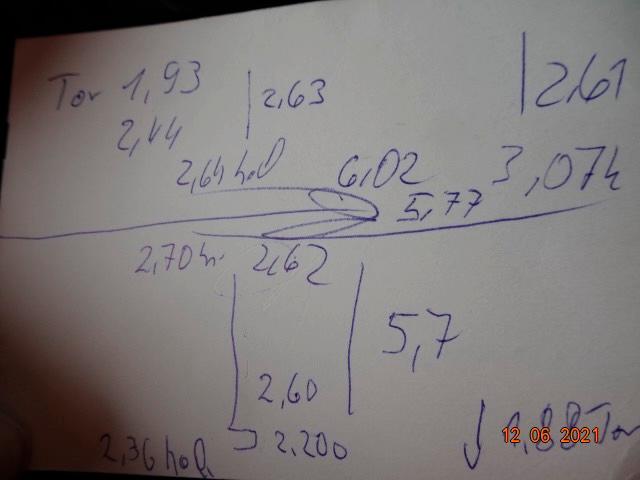 Tor 1,93
2,63
2,61
2,44
2,64 hol
6,02
3,07h
5,77
2,70 h.
2,62
5,7
2,60
1,88 Tor
2,36 hol.
2,200
12 06 2021